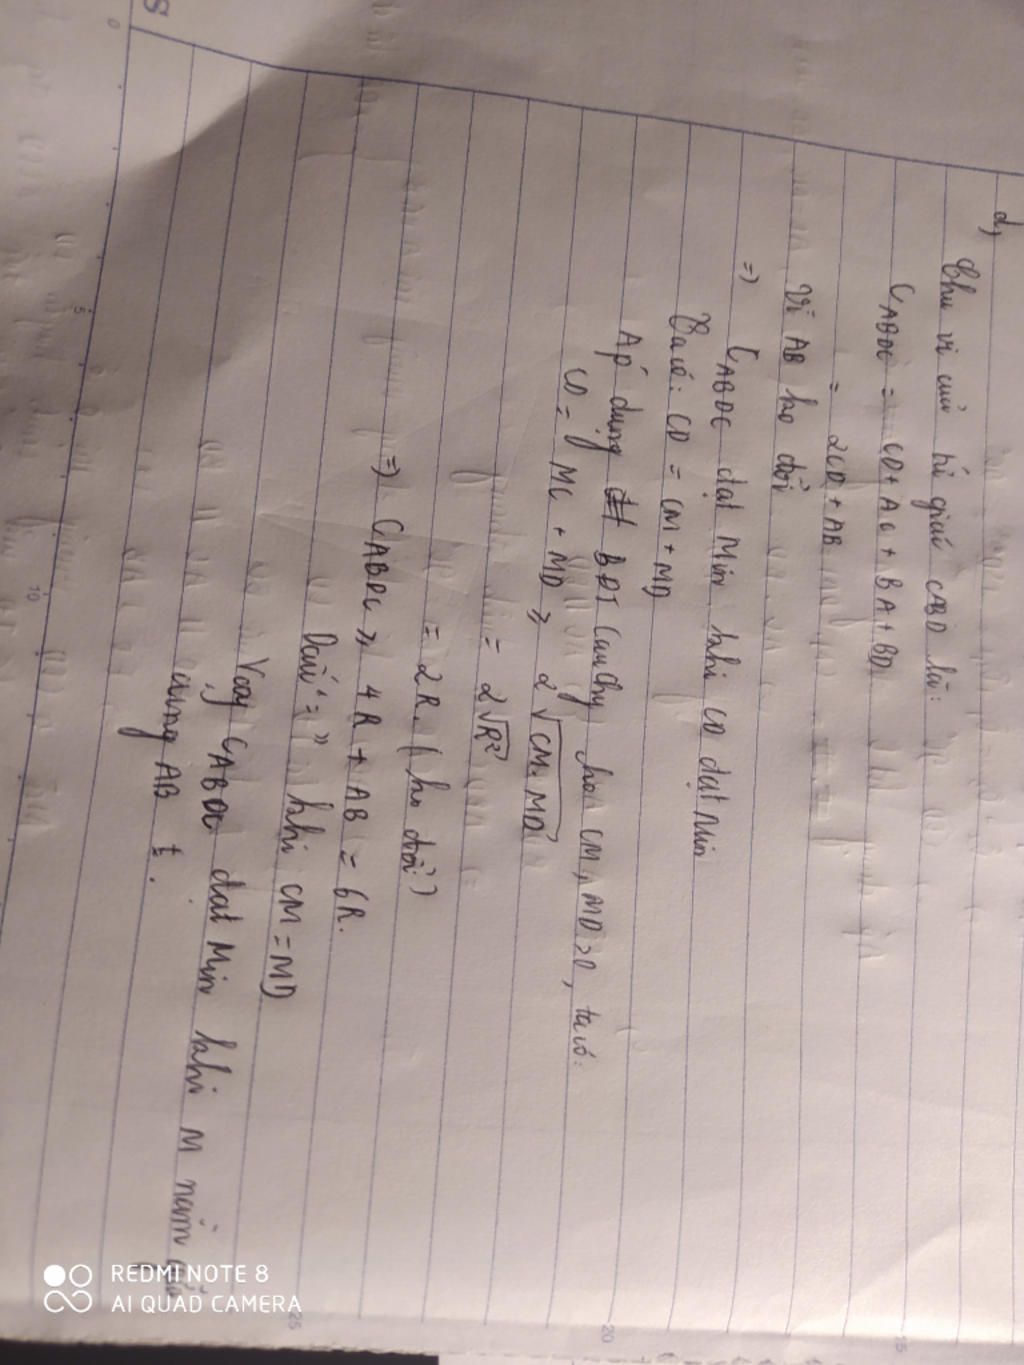 d,
Chu vi của tứ giác CABD là:
CABDC = CD + AC + BA + BD
= 2CD + AB
Vì AB ko đổi
=> CABDC đạt Min khi CD đạt Min
Ta có: CD = CM + MD
Áp dụng BĐT Cauchy ho CM, MD > 0, ta có:
CD = MC + MD ≥ 2√CM.MD
= 2√R²
= 2R. (ko đổi)
=> CABDC ≥ 4R + AB = 6R.
Dấu "=" khi CM = MD
Vậy CABDC đạt Min khi M nằm
cung AB
REDMI NOTE 8
AI QUAD CAMERA
0
5
10
15
20
25